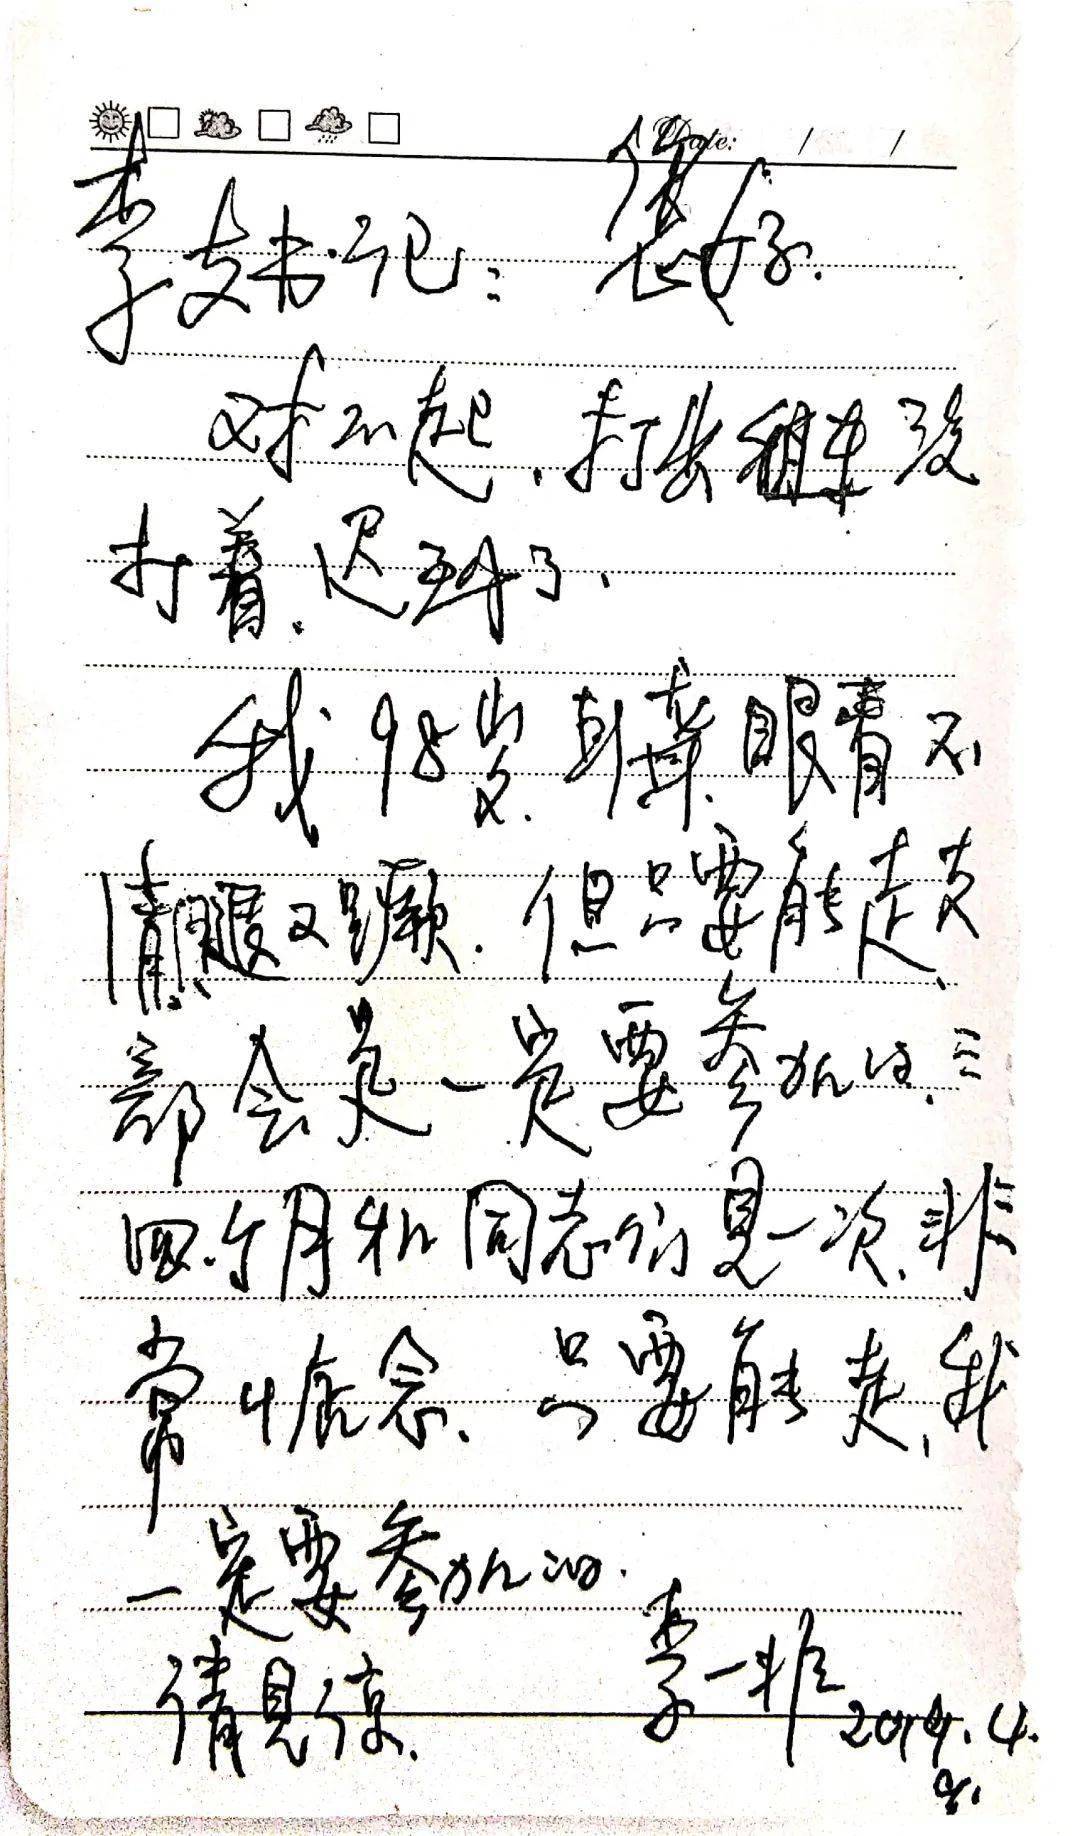 Date: / /
李支书记： 您好.
对不起、打出租车没
打着、迟到了、
我98岁、耳聋、眼睛不
清、腿又瘸. 但只要能走、支
部会是一定要参加的、三
四个月和同志们见一次、非
常惦念、只要能走、我
一定要参加的.
请见谅. 李一非
2019.4.